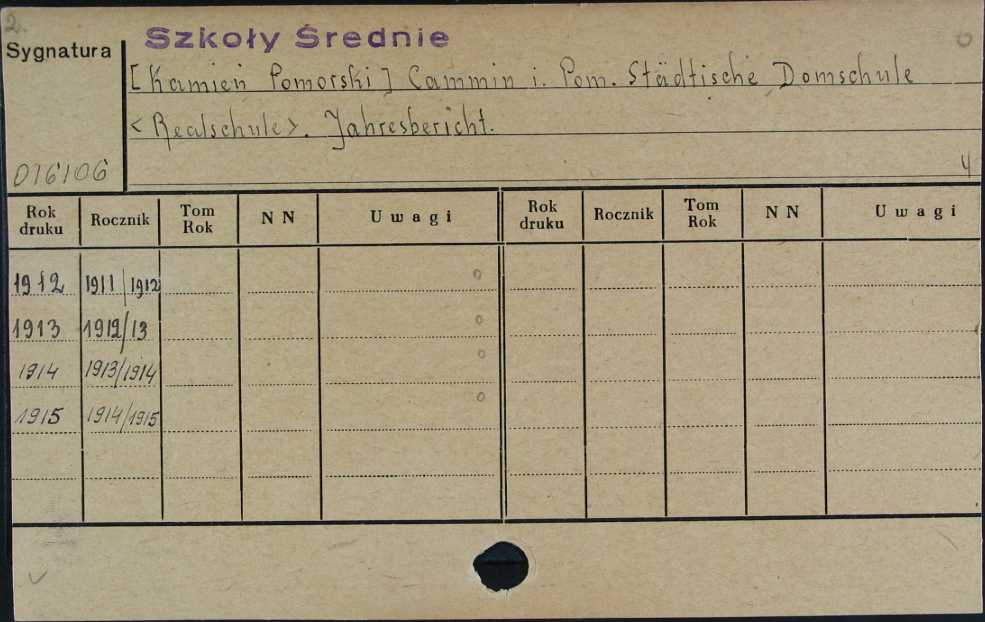 2.
Szkoły Średnie
Sygnatura
[Kamień Pomorski] Cammin i. Pom. Städtische Domschule
<Realschule>. Jahresbericht.
016106
4
Rok druku Rocznik Tom Rok N N Uwagi Rok druku Rocznik Tom Rok N N Uwagi
1912 1911/1912 o
1913 1912/13 o
1914 1913/1914 o
1915 1914/1915 o